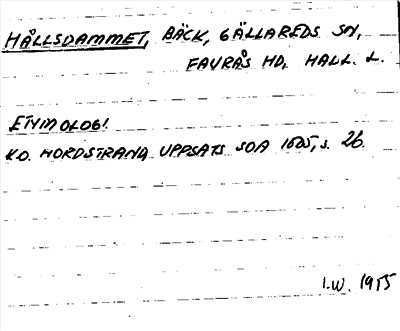 HÅLLSDAMMET, BÄCK, GÄLLAREDS SN,
FAURÅS HD, HALL. L.
ETYMOLOGI
K.O. NORDSTRAND UPPSATS SOA 1605, s. 26.
I.W. 1955